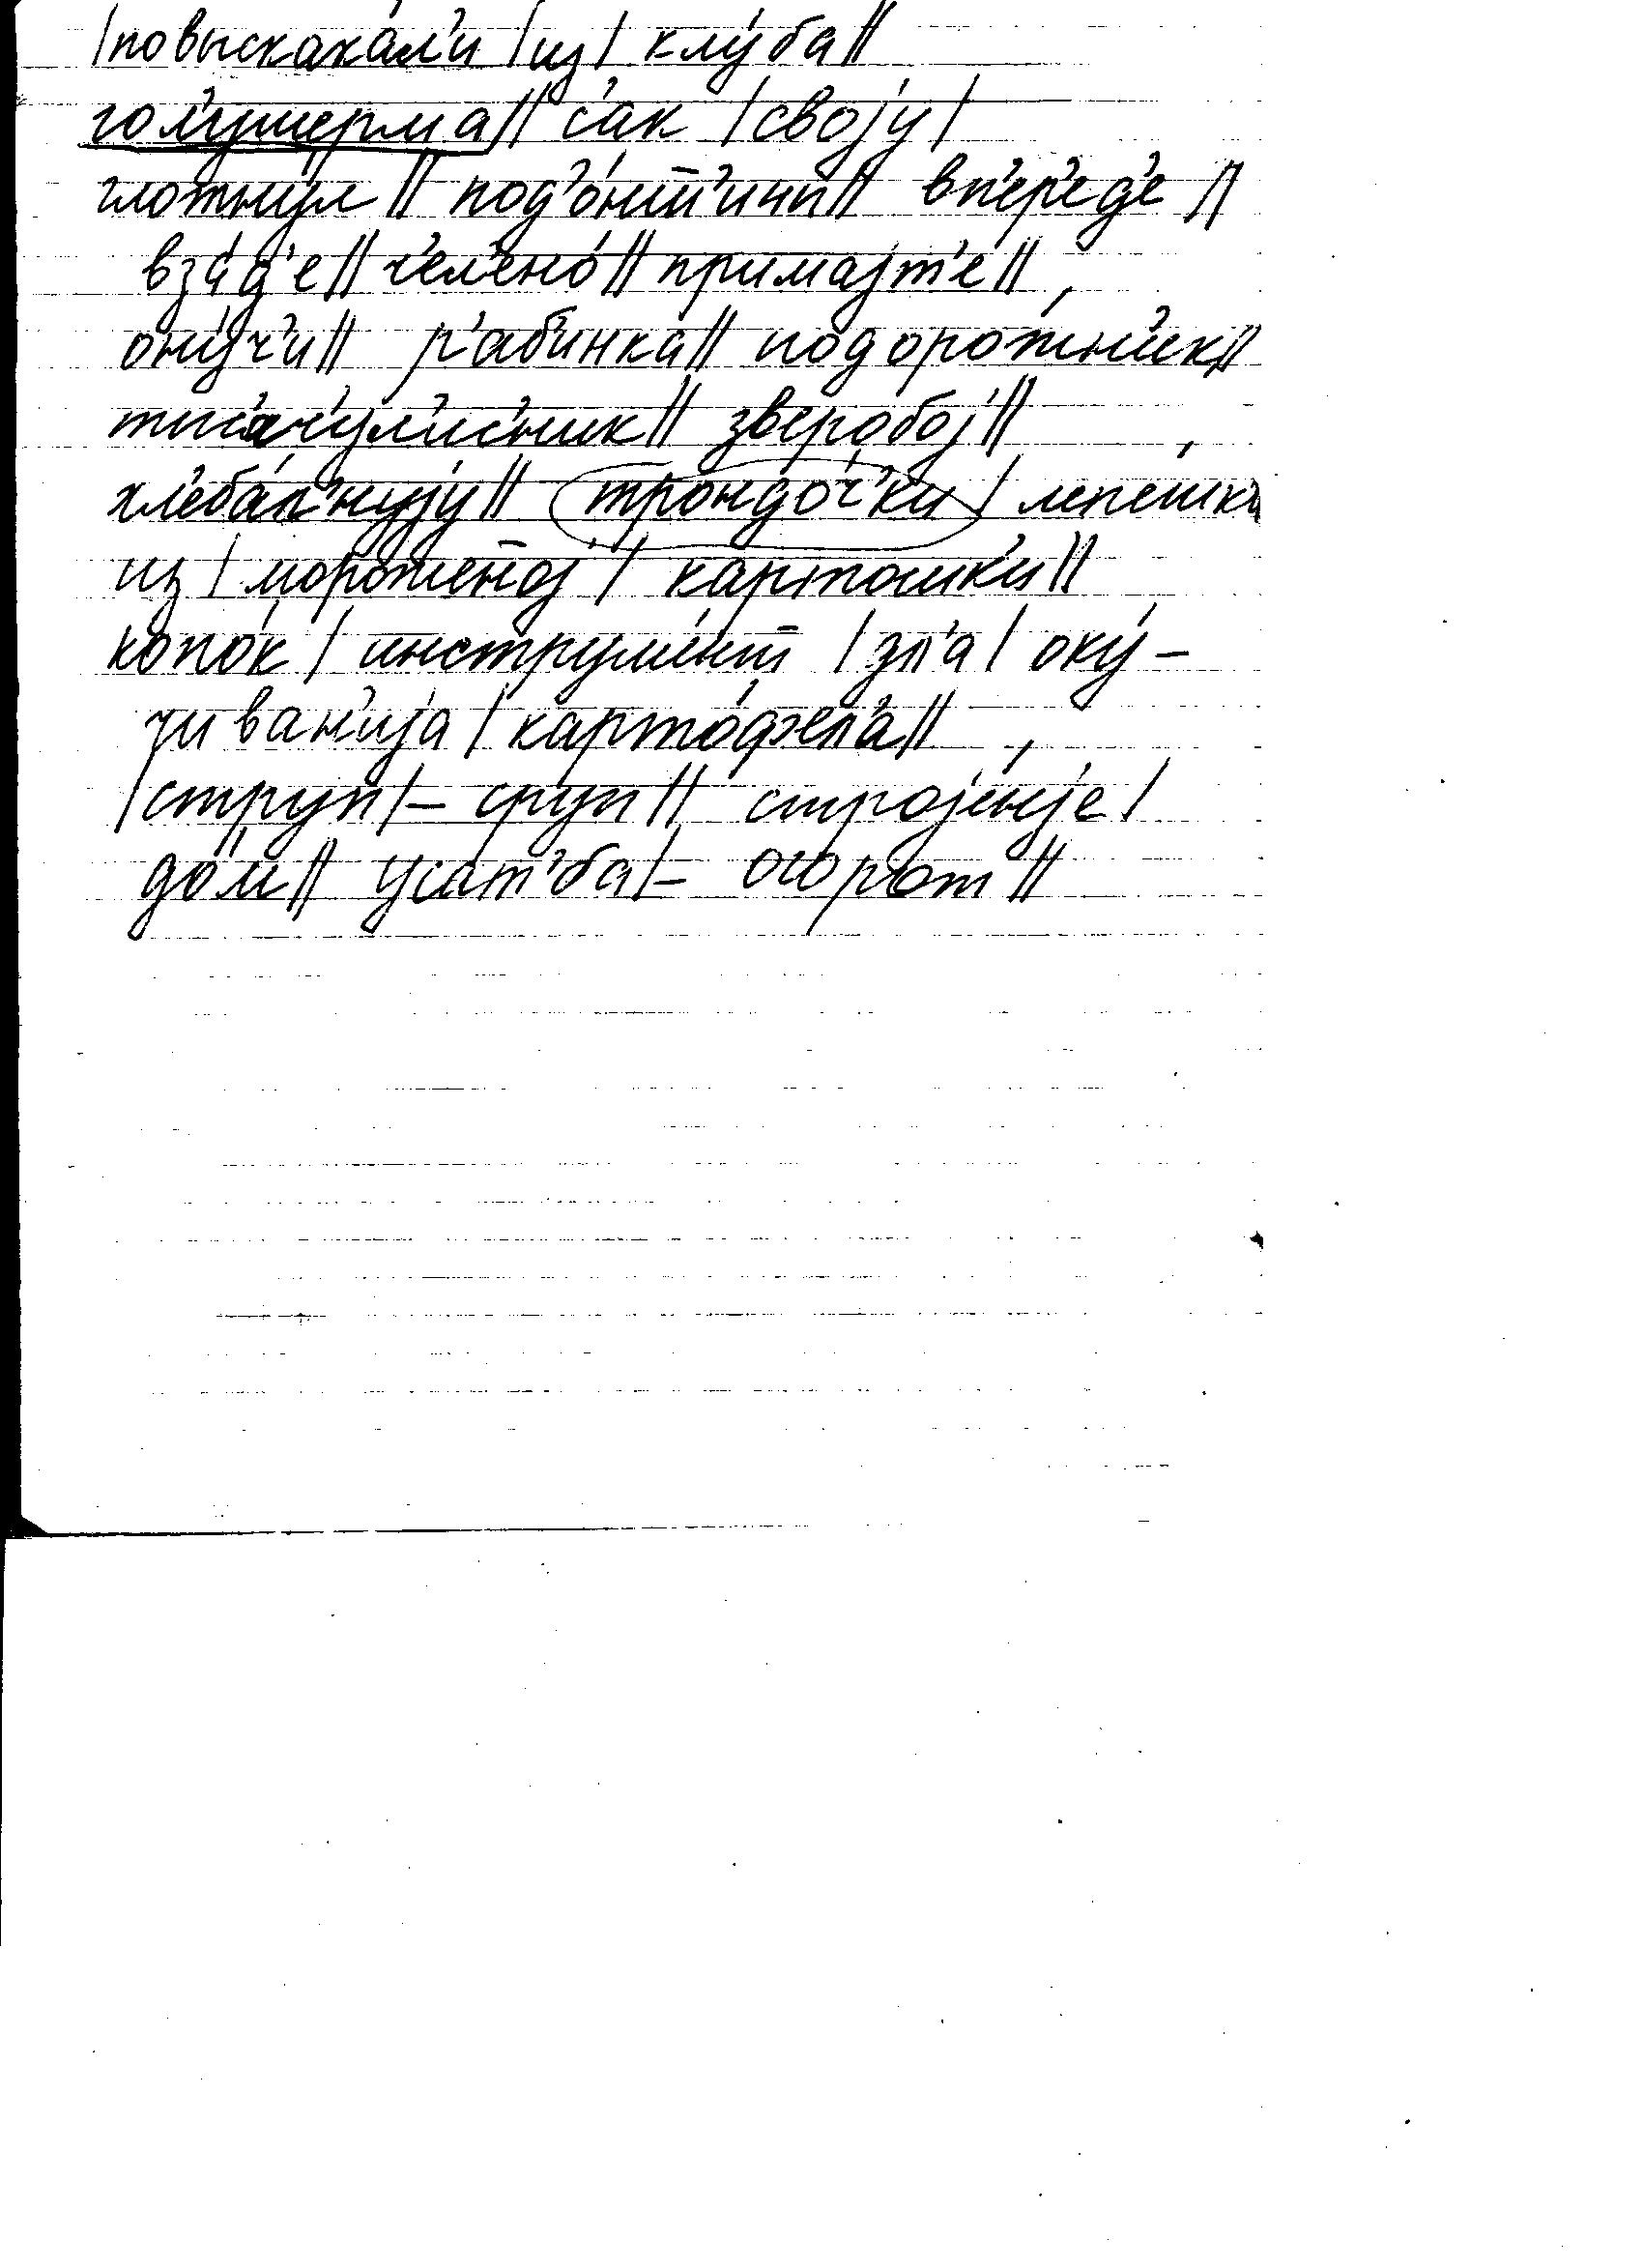 |повыскакáл'и |из| клу́ба||
гол'ушерма|| с'ак |своjу|
глотну́л || под'о́нт'ичи|| вп'ер'ед'е ||
вза́д'е|| ч'ел'ено́|| примаjт'е||
ону́ч'и|| р'аб'инка́|| подоро́жн'ик||
тис'ач'ул'и́с'ник|| зверобоj||
хл'еба́л'нуjу|| трондо́ч'ки | лепешки
из | моро́женоj | картошк'и||
копо́к | инструм'е́нт |дл'а| оку́-
чиван'иjа | карто́фел'а||
|струп|– сруп|| строjе́н'jе|
до́м|| Усат'ба|– огорот||